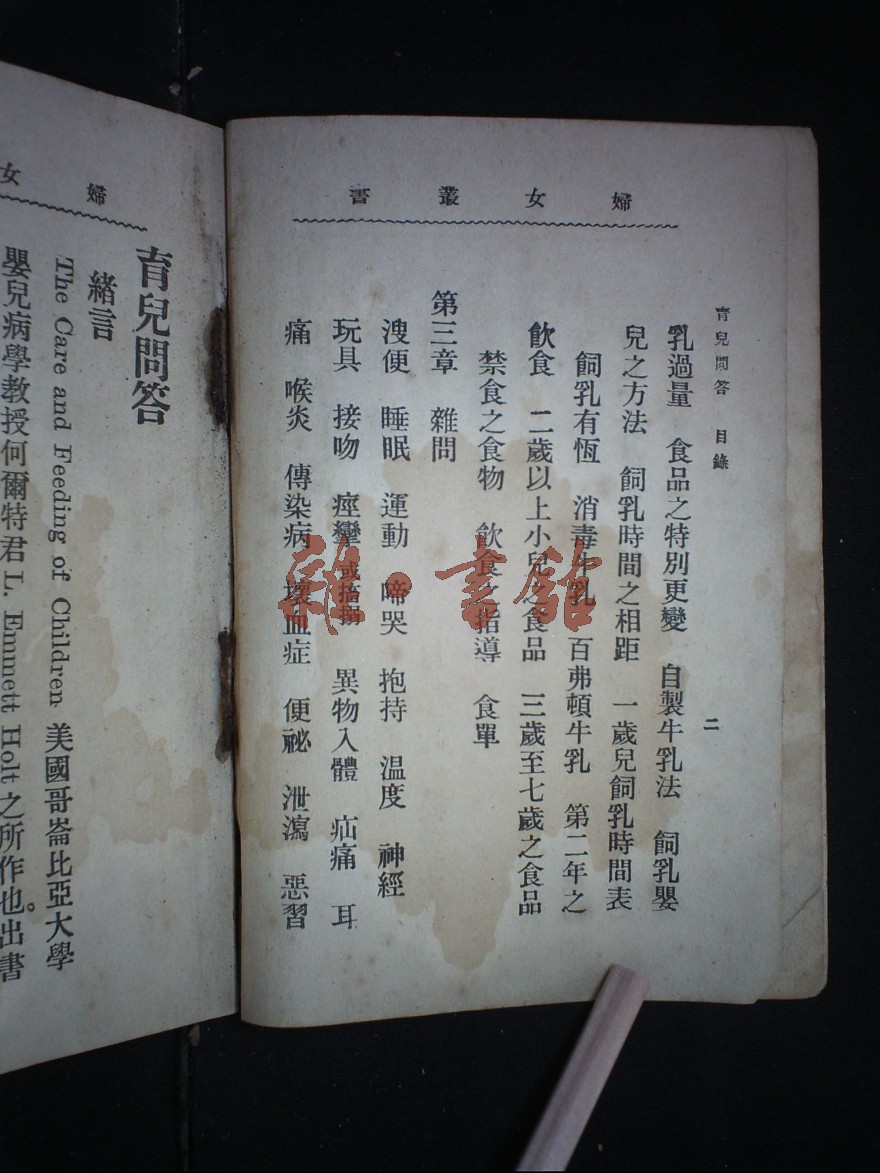 婦女叢書
育兒問答 目錄
二
乳過量 食品之特別更變 自製牛乳法 飼乳嬰
兒之方法 飼乳時間之相距 一歲兒飼乳時間表
飼乳有恆 消毒牛乳 百弗頓牛乳 第二年之
飲食 二歲以上小兒之食品 三歲至七歲之食品
禁食之食物 飲食之指導 食單
第三章 雜問
溲便 睡眠 運動 啼哭 抱持 温度 神經
玩具 接吻 痙攣或搐搦 異物入體 疝痛 耳
痛 喉炎 傳染病 壞血症 便祕 泄瀉 惡習
婦女
育兒問答
緒言
The Care and Feeding of Children 美國哥崙比亞大學
嬰兒病學教授何爾特君 L. Emmett Holt 之所作也。出書
雜·書館